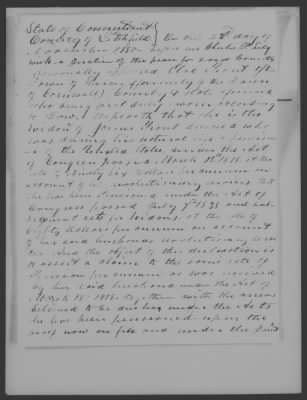 State of Connecticut
County of Litchfield } On this 28th day of
November 1850 before me Charles F Sedg
wick a Justice of the peace for said County
personally appeared Olive Prout of the
Town of Sharon (formerly of the Town
of Cornwall) County & State aforesaid
who being first duly sworn according
to Law deposeth that she is the
widow of James Prout deceased who
was during his natural life a pensioner
of the United States, under the Act
of Congress passed March 18th 1818 at the
rate of ninety six Dollars per annum on
account of his revolutionary services, that
she has been Pensioned under the Act of
Congress passed July 7th 1838 and sub
sequent acts for widows, at the rate of
eighty Dollars per annum on account
of her said husbands revolutionary services
and the object of this declaration is
to assert a claim to the same rate of
Pension per annum as was received
by her said husband under the Act of
March 18th 1818 together with the arrears
believed to be due her under the Acts
she has been pensioned upon the
proof now on file and under the